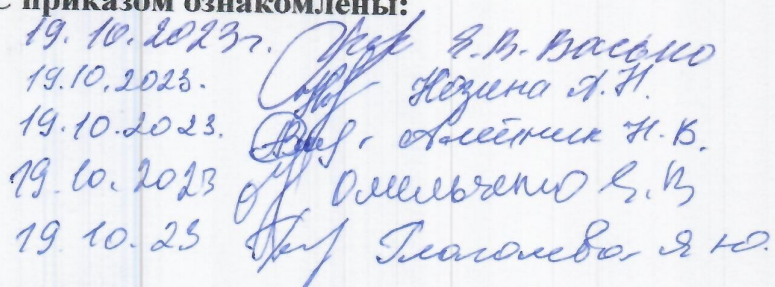 С приказом ознакомлены:
19.10.2023г. Е.В. Васько
19.10.2023. Нозина А.Н.
19.10.2023. Алейник Н.В.
19.10.2023 Омельченко Е.В
19.10.23 Глаголева Я Ю.